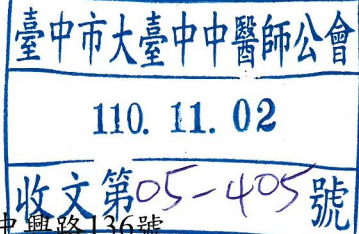 臺中市大臺中中醫師公會
110. 11. 02
收文第05-405號
中興路136號